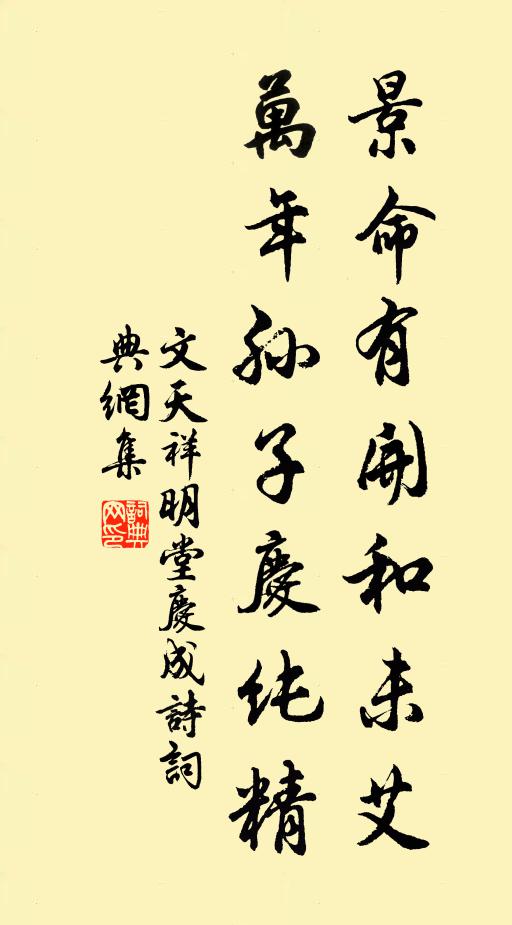 景命有開和未艾
萬年孫子慶純精
文天祥明堂慶成詩詞
典網集
詞典
网印